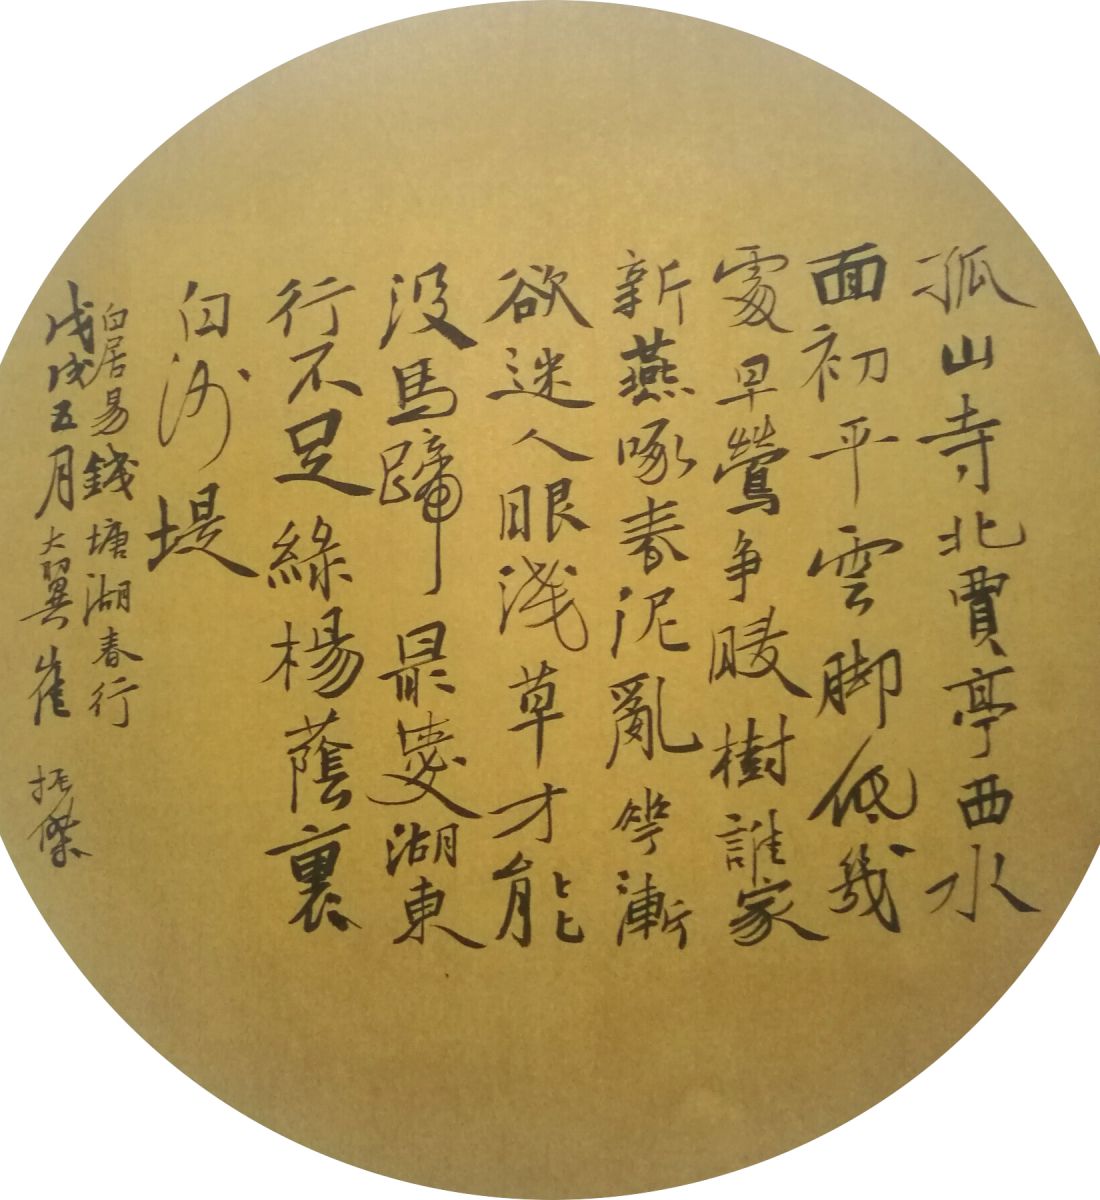 孤山寺北賈亭西水
面初平雲脚低幾
處早鶯争暖樹誰家
新燕啄春泥亂花漸
欲迷人眼淺草才能
没馬蹄最愛湖東
行不足綠楊蔭裏
白沙堤
白居易錢塘湖春行
戊戌五月大翼崔振傑